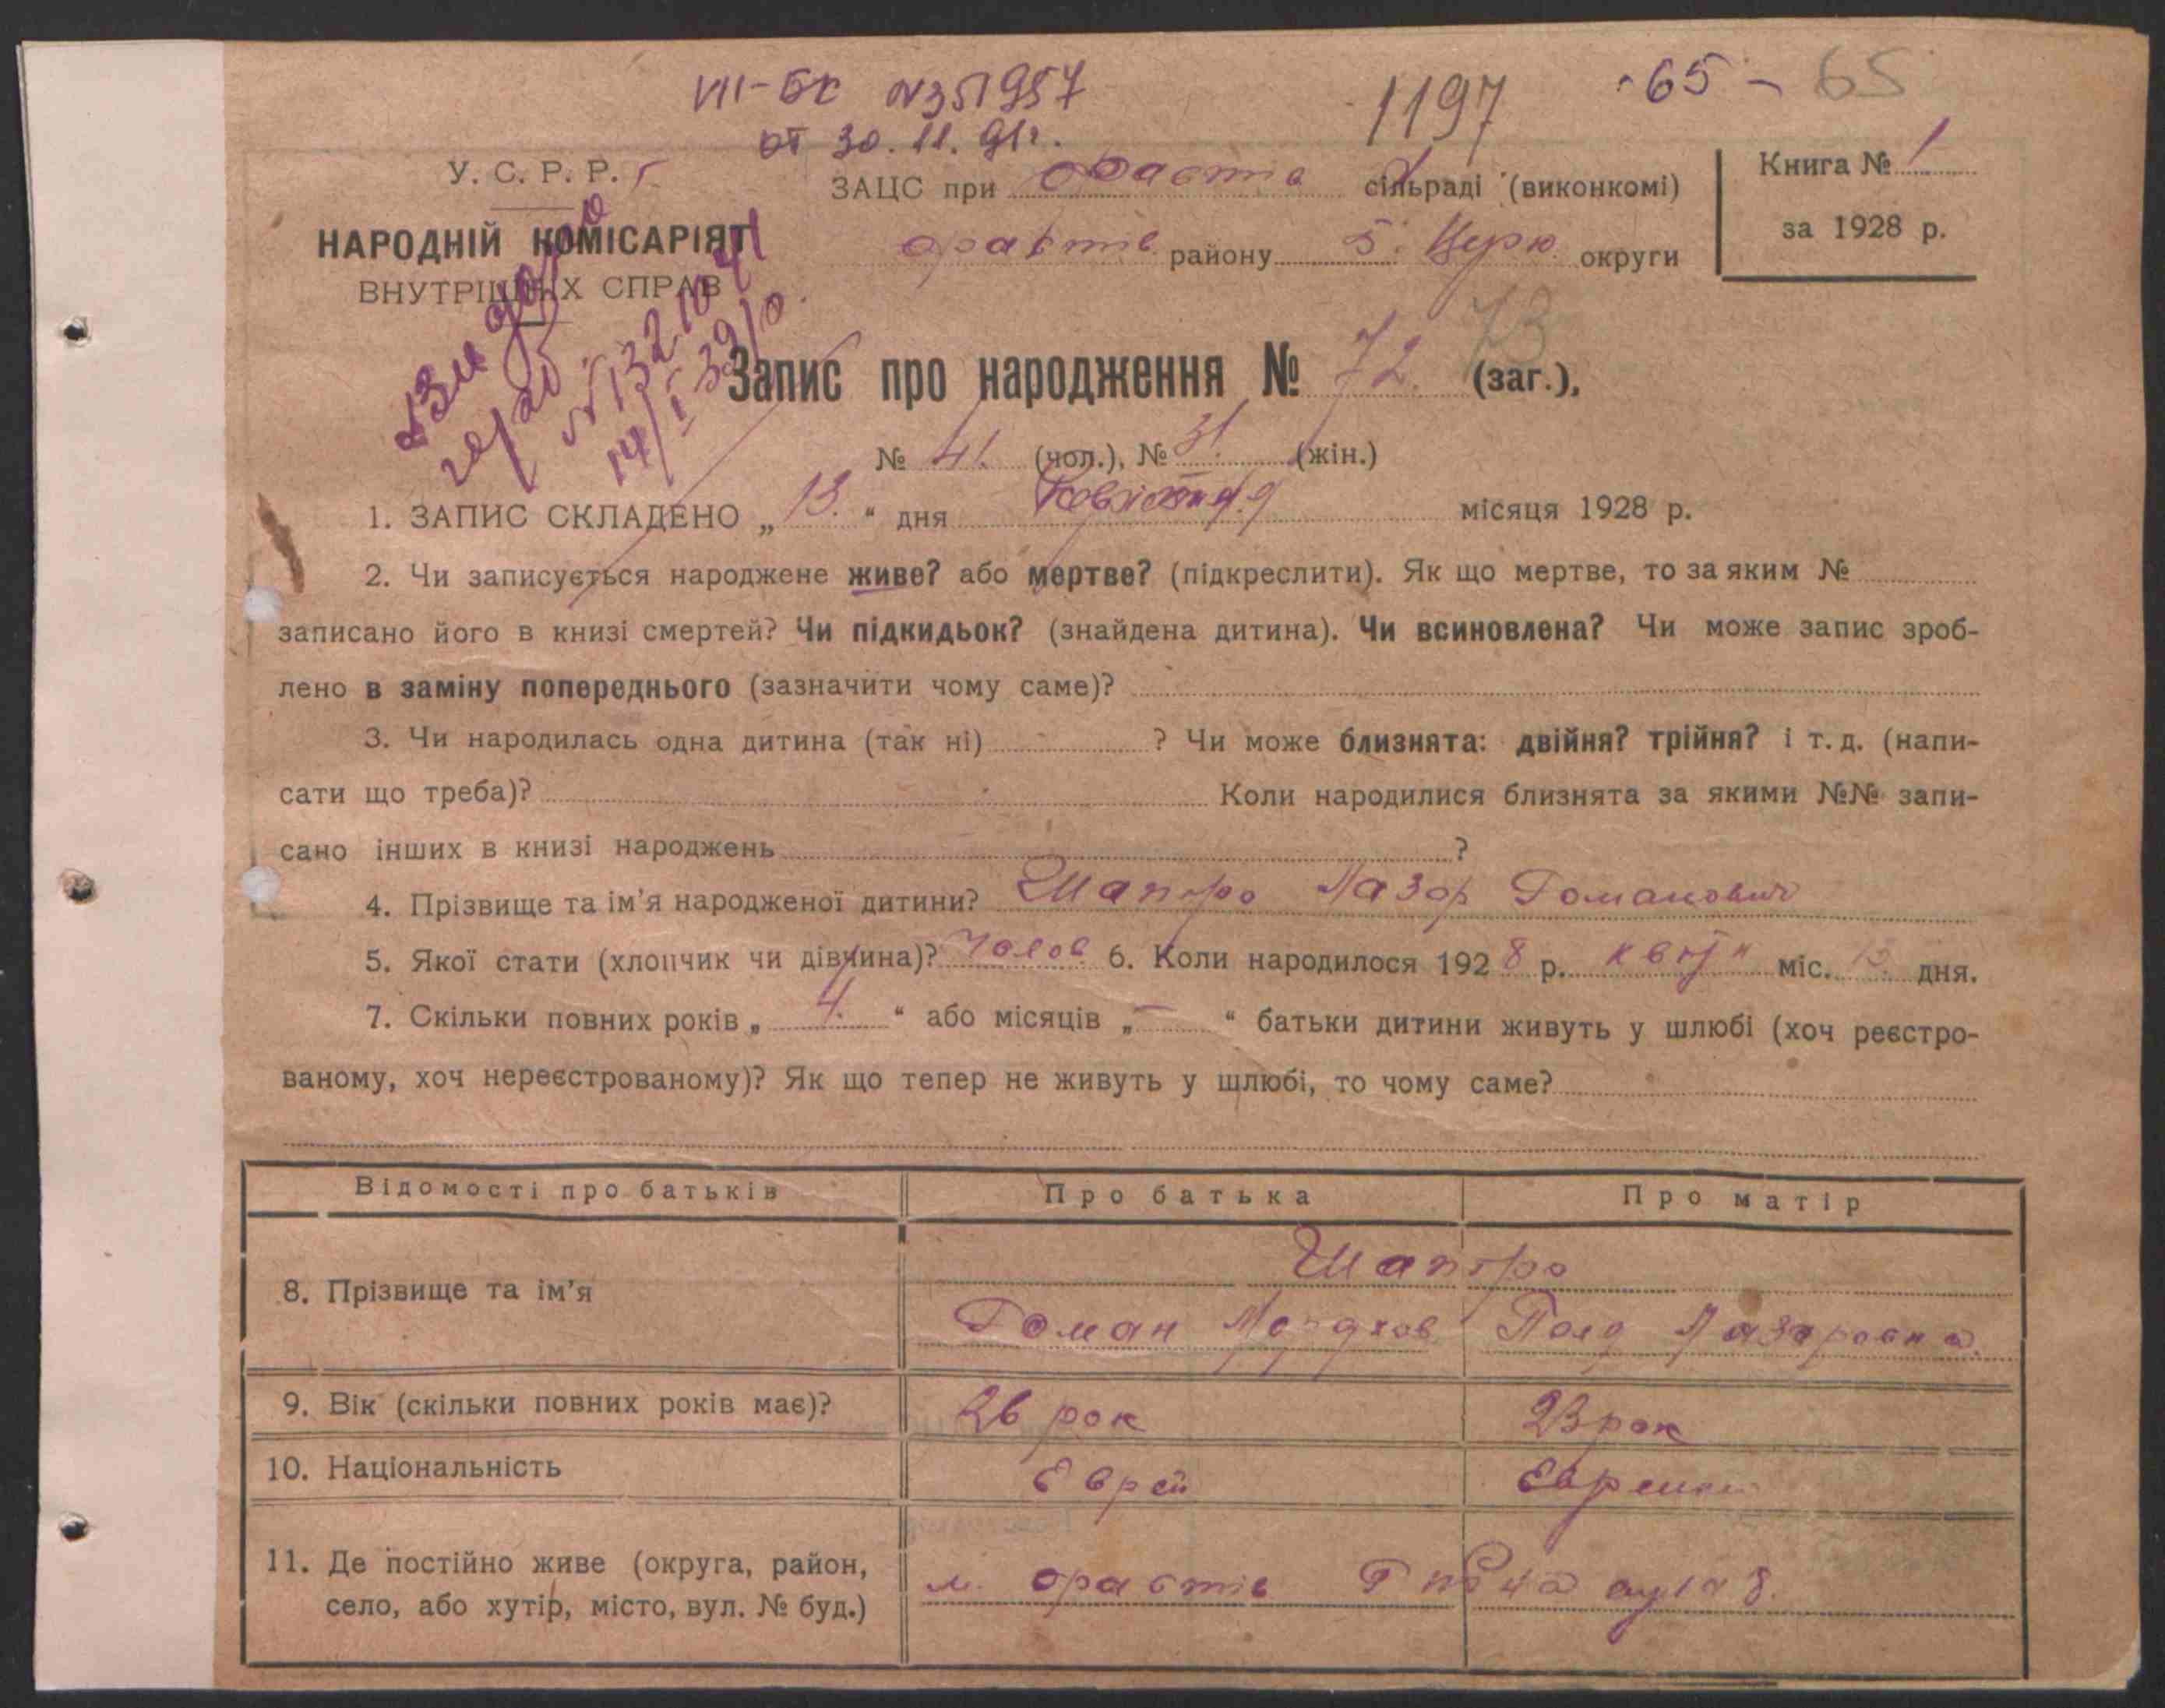 VIII-БК №351957
от 30.11.91г.
1197
65 – 65
У. С. Р. Р.
НАРОДНІЙ КОМІСАРІЯТ
ВНУТРІШНІХ СПРАВ
ЗАЦС при сільраді (виконкомі)
району Б. Церк. округи
Книга № 1
за 1928 р.
Запис про народження № 72. 73 (заг.),
№ 41. (чол.), № 31. (жін.)
1. ЗАПИС СКЛАДЕНО „13.“ дня місяця 1928 р.
2. Чи записується народжене живе? або мертве? (підкреслити). Як що мертве, то за яким №
записано його в книзі смертей? Чи підкидьок? (знайдена дитина). Чи всиновлена? Чи може запис зроб-
лено в заміну попереднього (зазначити чому саме)?
3. Чи народилась одна дитина (так ні) ? Чи може близнята: двійня? трійня? і т. д. (напи-
сати що треба)? Коли народилися близнята за якими №№ запи-
сано інших в книзі народжень ?
4. Прізвище та ім’я народженої дитини? Шапіро Лазар Романович
5. Якої стати (хлопчик чи дівчина)? Чолов. 6. Коли народилося 1928 р. міс. дня.
7. Скільки повних років „4.“ або місяців „–“ батьки дитини живуть у шлюбі (хоч реєстро-
ваному, хоч нереєстрованому)? Як що тепер не живуть у шлюбі, то чому саме?
Відомості про батьків Про батька Про матір
8. Прізвище та ім’я Шапіро
Роман Мордков Лазаровна
9. Вік (скільки повних років має)? 26 рок 23 рок
10. Національність Єврей
11. Де постійно живе (округа, район,
село, або хутір, місто, вул. № буд.) м.